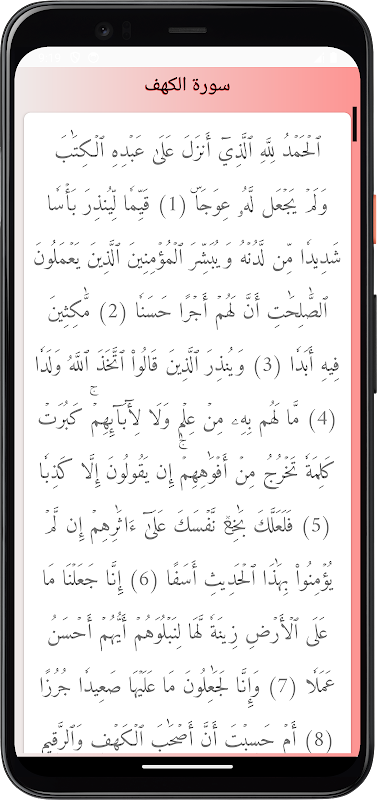 سورة الكهف
ٱلْحَمْدُ لِلَّهِ ٱلَّذِيٓ أَنزَلَ عَلَىٰ عَبْدِهِ ٱلْكِتَٰبَ
وَلَمْ يَجْعَل لَّهُۥ عِوَجَاۜ (1) قَيِّمٗا لِّيُنذِرَ بَأْسٗا
شَدِيدٗا مِّن لَّدُنْهُ وَيُبَشِّرَ ٱلْمُؤْمِنِينَ ٱلَّذِينَ يَعْمَلُونَ
ٱلصَّٰلِحَٰتِ أَنَّ لَهُمْ أَجْرًا حَسَنٗا (2) مَّٰكِثِينَ
فِيهِ أَبَدٗا (3) وَيُنذِرَ ٱلَّذِينَ قَالُوا۟ ٱتَّخَذَ ٱللَّهُ وَلَدٗا
(4) مَّا لَهُم بِهِۦ مِنْ عِلْمٖ وَلَا لِأٓبَآئِهِمْۚ كَبُرَتْ
كَلِمَةٗ تَخْرُجُ مِنْ أَفْوَٰهِهِمْۚ إِن يَقُولُونَ إِلَّا كَذِبٗا
(5) فَلَعَلَّكَ بَٰخِعٞ نَّفْسَكَ عَلَىٰٓ ءَاثَٰرِهِمْ إِن لَّمْ
يُؤْمِنُوا۟ بِهَٰذَا ٱلْحَدِيثِ أَسَفًا (6) إِنَّا جَعَلْنَا مَا
عَلَى ٱلْأَرْضِ زِينَةٗ لَّهَا لِنَبْلُوَهُمْ أَيُّهُمْ أَحْسَنُ
عَمَلٗا (7) وَإِنَّا لَجَٰعِلُونَ مَا عَلَيْهَا صَعِيدٗا جُرُزًا
(8) أَمْ حَسِبْتَ أَنَّ أَصْحَٰبَ ٱلْكَهْفِ وَٱلرَّقِيمِ